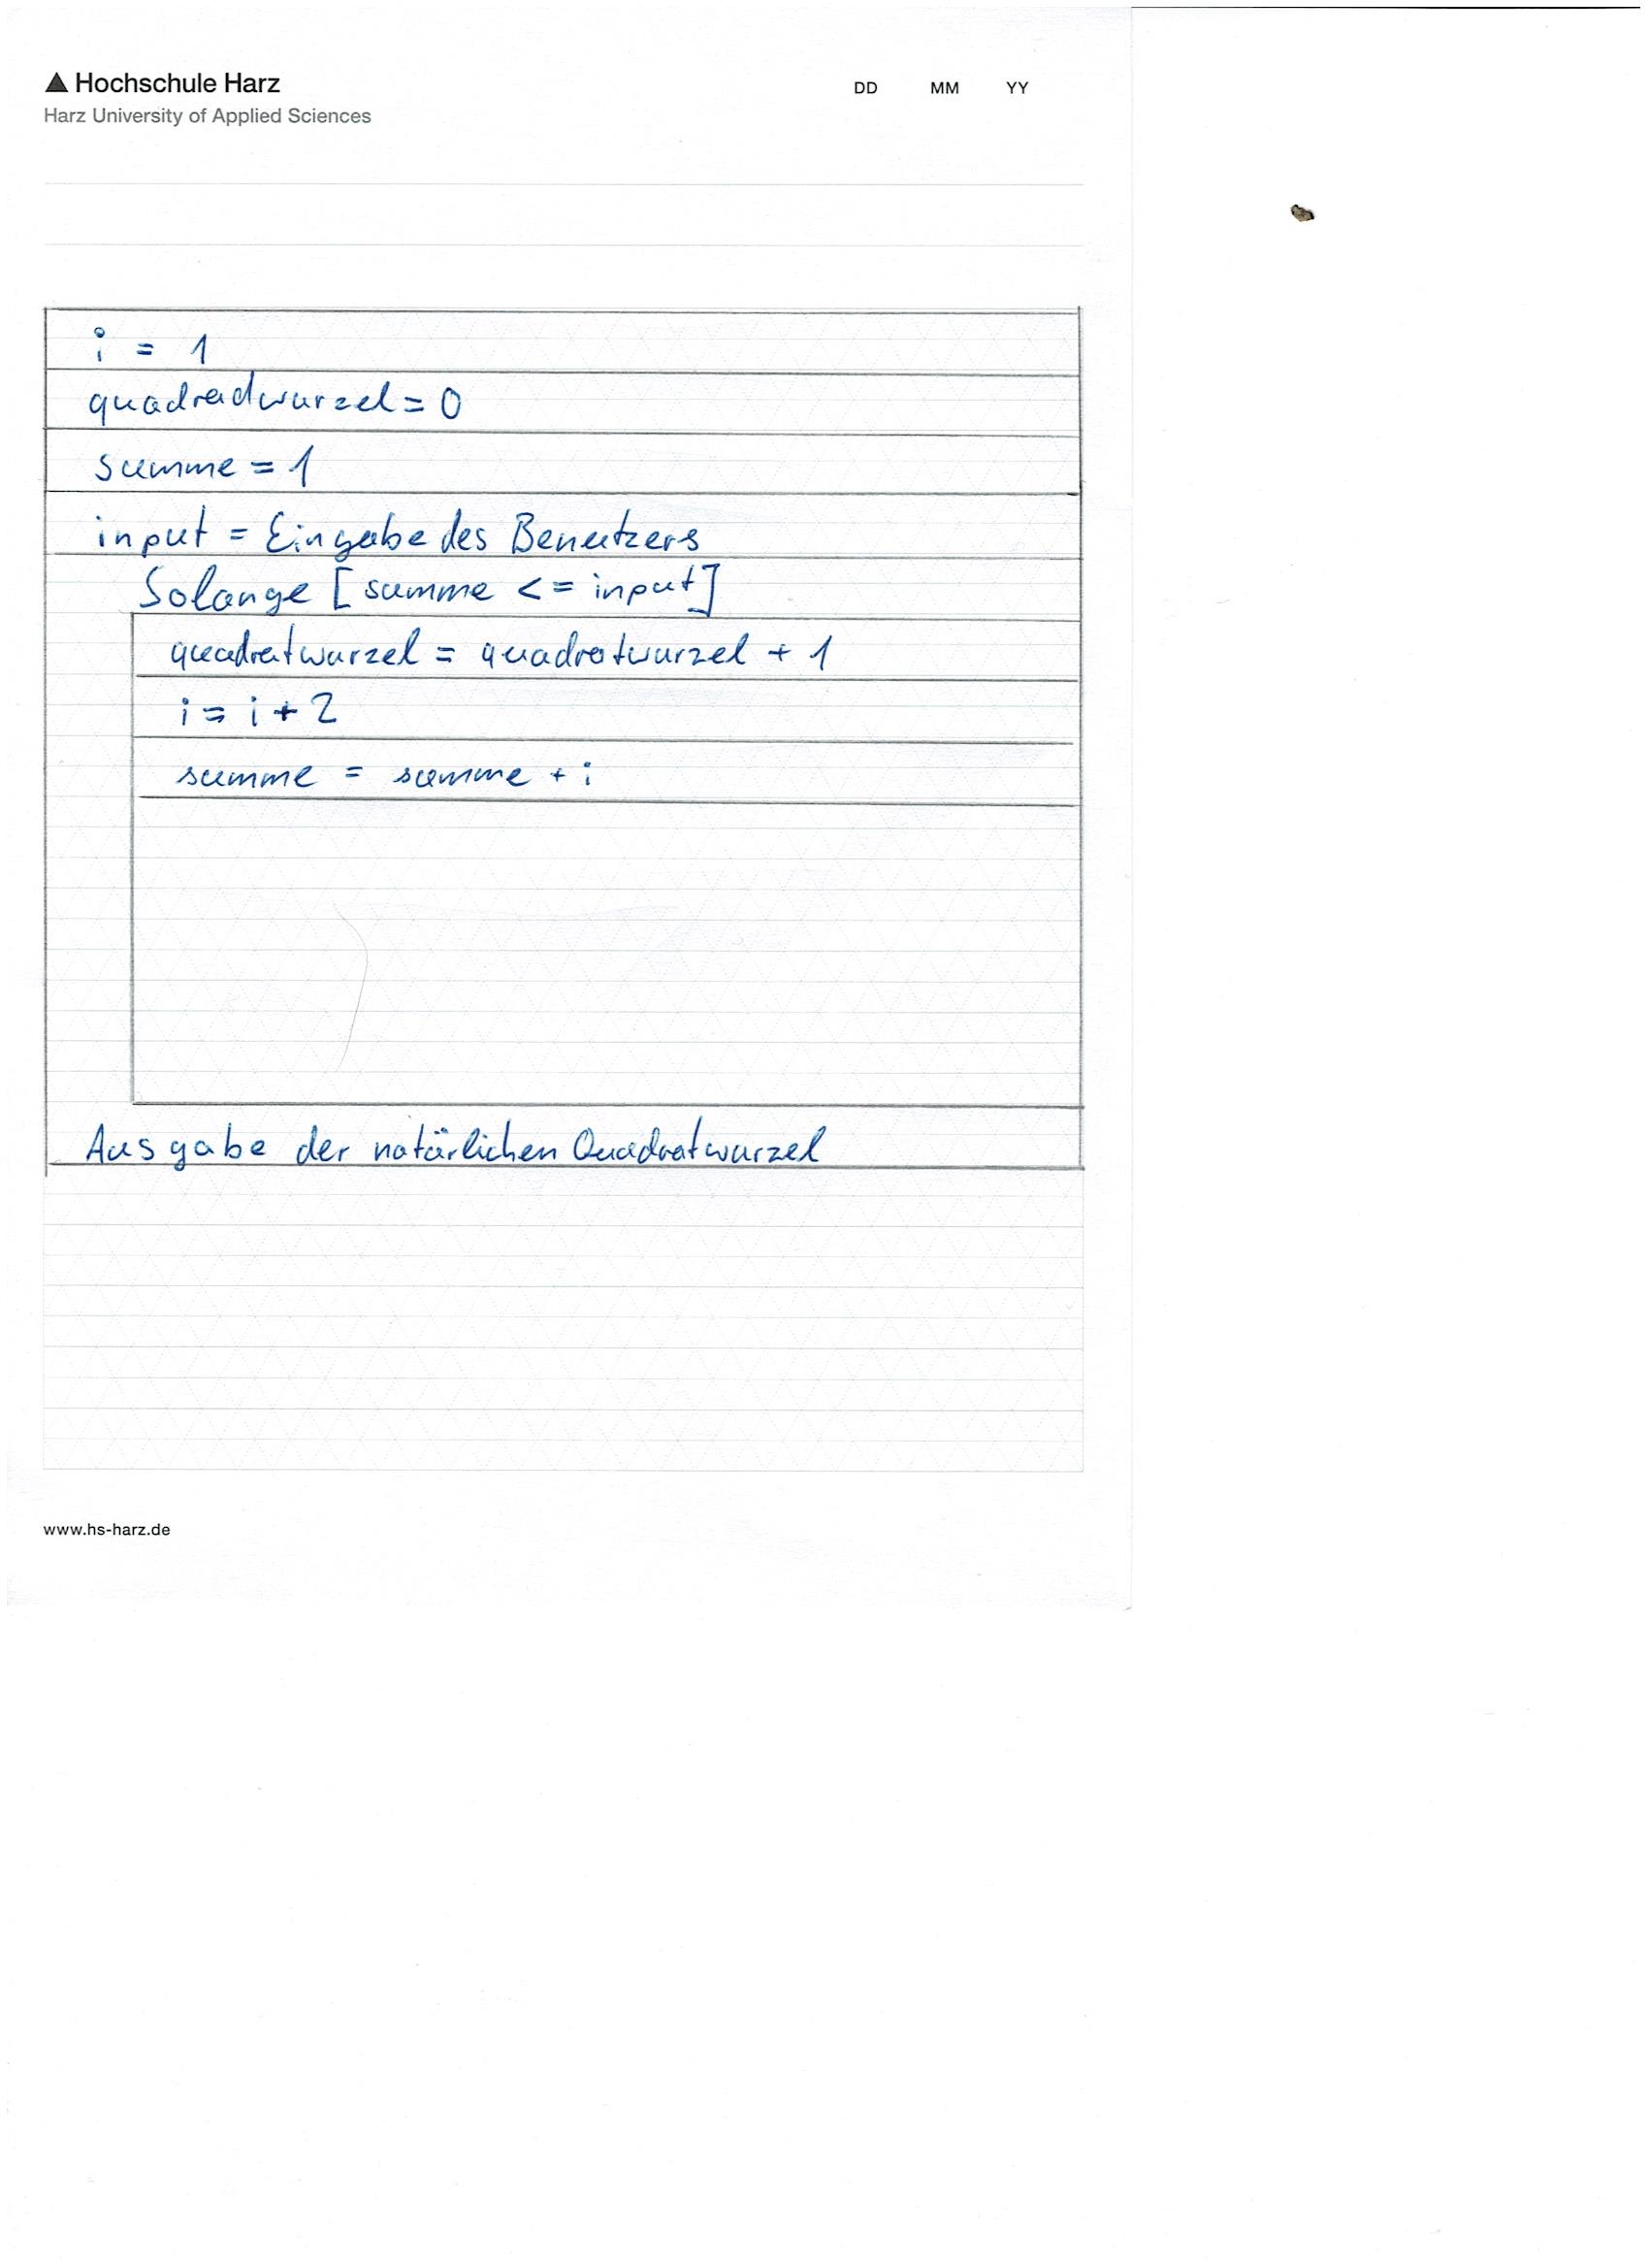 Hochschule Harz
Harz University of Applied Sciences
DD MM YY
i = 1
quadradwurzel = 0
summe = 1
input = Eingabe des Benutzers
Solange [summe <= input]
quadratwurzel = quadratwurzel + 1
i = i + 2
summe = summe + i
Ausgabe der natürlichen Quadratwurzel
www.hs-harz.de